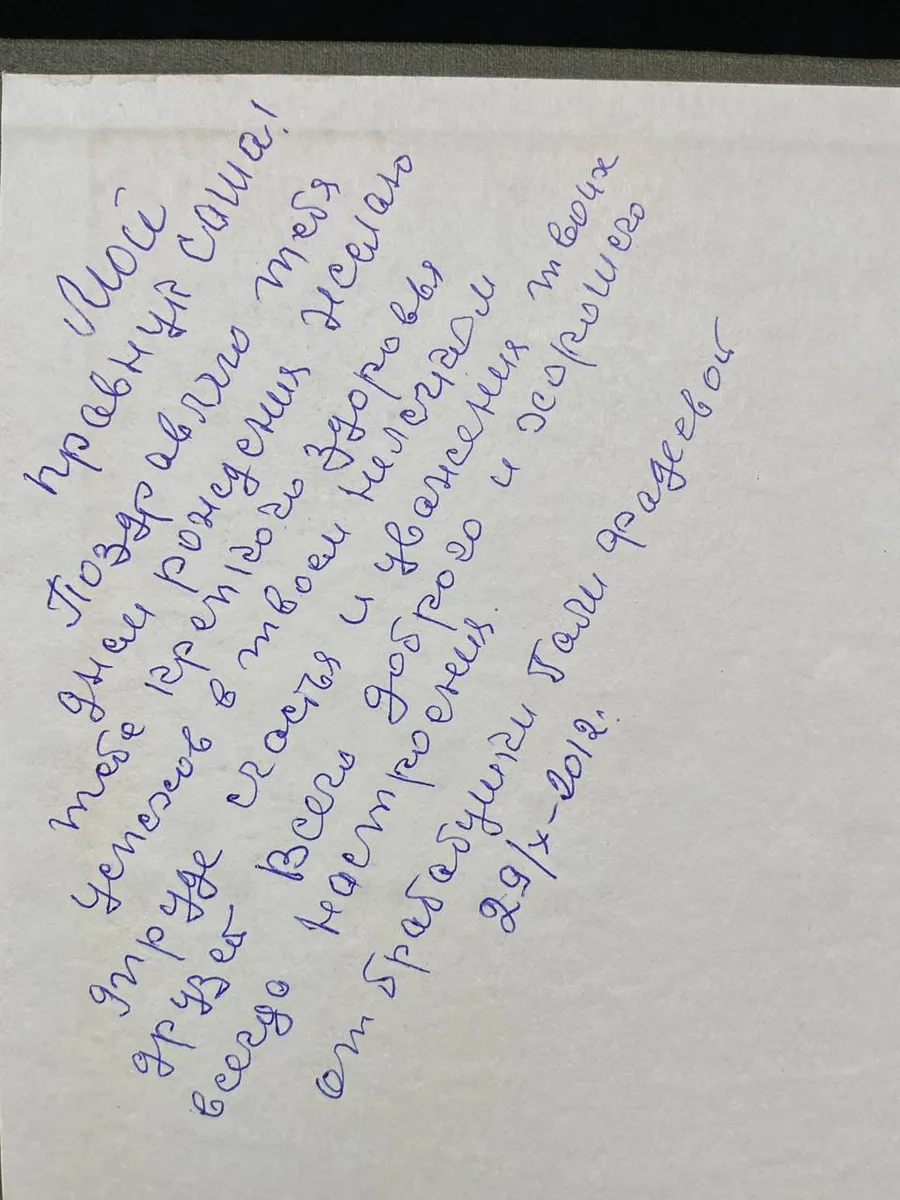 Мой
правнук Саша!
Поздравляю тебя
днем рождения желаю
тебе крепкого здоровья
успехов в твоем нелегком
труде счастья и уважения твоих
друзей Всего доброго и хорошего
всегда настроения
от брабабушки Гали Фадеевой
29/X-2012г.